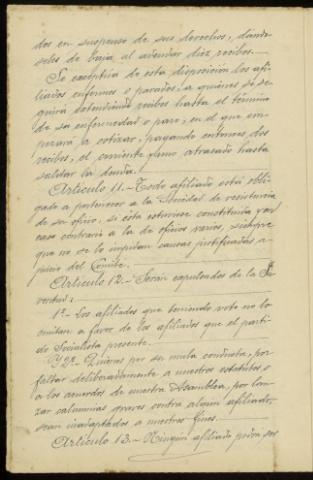 dos en suspenso de sus derechos, dándo-
seles de baja al adeudar diez recibos.
Se exceptúa de esta disposición los afi-
liados enfermos o parados, a quienes se se-
guirá extendiendo recibos hasta el término
de su enfermedad o paro, en el que em-
pezará a cotizar, pagando entonces dos
recibos, el corriente y uno atrasado hasta
saldar la deuda.
Artículo 11.- Todo afiliado está obli-
gado a pertenecer a la Sociedad de resistencia
de su oficio, si esta estuviese constituida y en
caso contrario a la de oficios varios, siempre
que no se lo impidan causas justificadas a
juicio del Comité.
Artículo 12.- Serán expulsados de la Ju-
ventud:
1º- Los afiliados que teniendo voto no lo
emitan a favor de los afiliados que el parti-
do Socialista presente.
Y 2º- Quienes por su mala conducta, por
faltar deliberadamente a nuestros estatutos o
a los acuerdos de nuestra Asamblea, por lan-
zar calumnias graves contra algún afiliado,
sean inadaptados a nuestros fines.
Artículo 13.- Ningún afiliado podrá ser